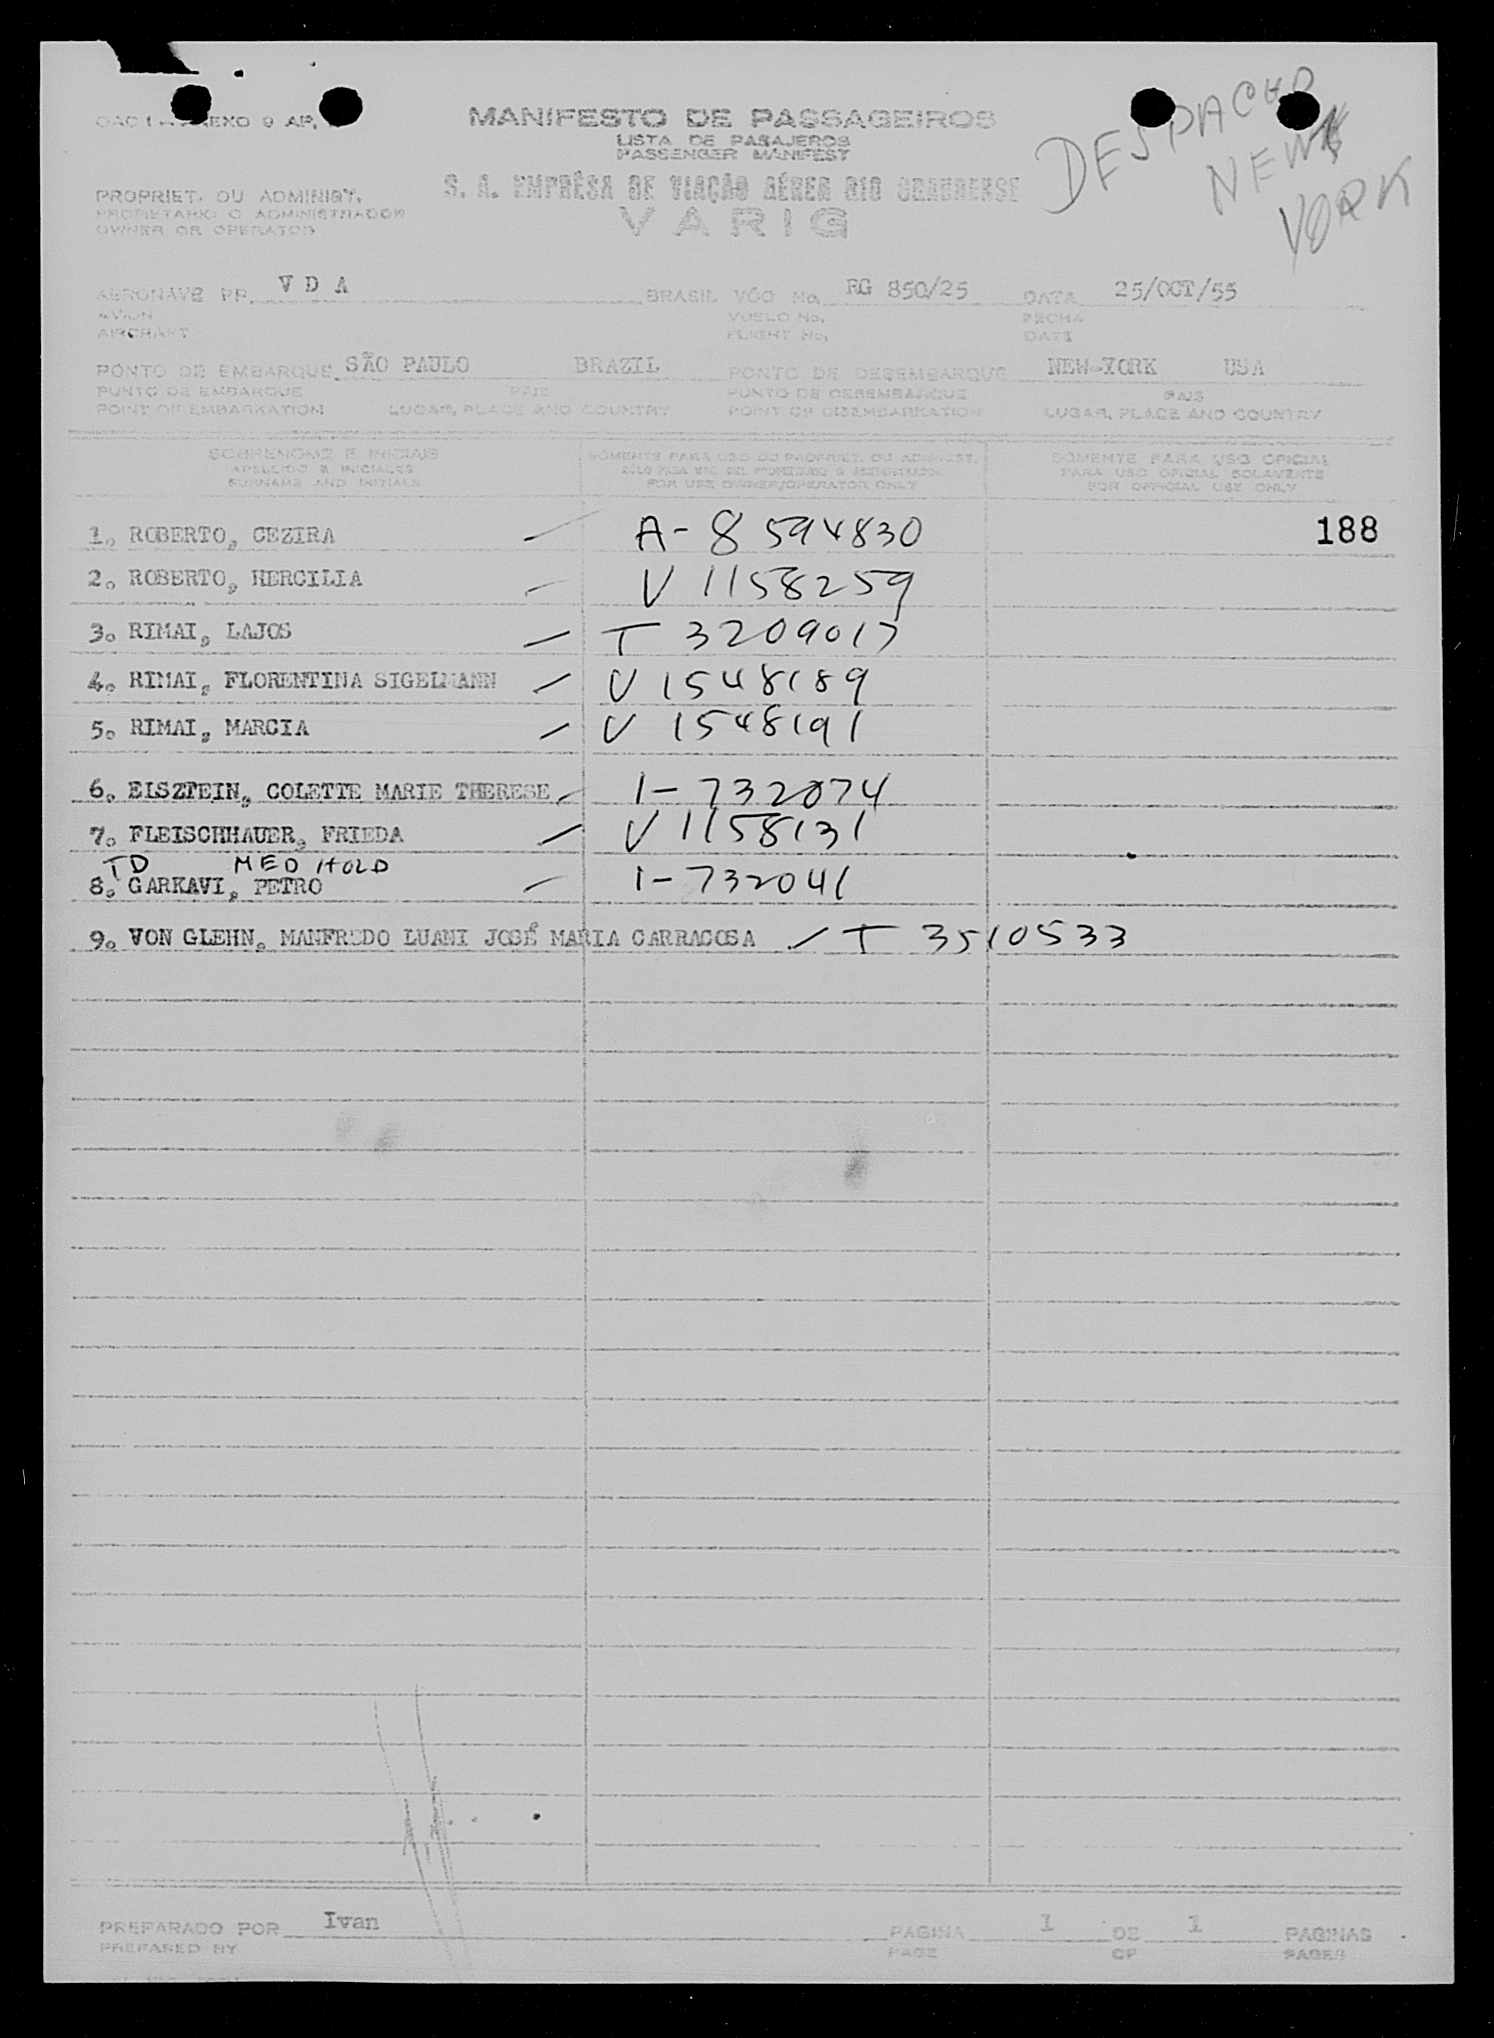 MANIFESTO DE PASSAGEIROS
LISTA DE PASAJEROS
PASSENGER MANIFEST
DESPACHO
NEW
YORK
PROPRIET. OU ADMINIST.
PROPIETARIO O ADMINISTRADOR
OWNER OR OPERATOR
S. A. EMPRÊSA DE VIAÇÃO AÉREA RIO GRANDENSE
VARIG
AERONAVE PP V D A BRASIL VÔO No. RG 850/25 DATA 25/OCT/55
AVION VUELO No. FECHA
AIRCRAFT FLIGHT No. DATE
PONTO DE EMBARQUE SÃO PAULO BRAZIL PONTO DE DESEMBARQUE NEW-YORK USA
PUNTO DE EMBARQUE PAIS PUNTO DE DESEMBARQUE PAIS
POINT OF EMBARKATION LUGAR, PLACE AND COUNTRY POINT OF DISEMBARKATION LUGAR, PLACE AND COUNTRY
SOBRENOME E INICIAIS SOMENTE PARA USO DO PROPRIET. OU ADMINIST. SOMENTE PARA USO OFICIAL
APELLIDO E INICIALES SÓLO PARA USO DEL PROPIETARIO O ADMINISTRADOR PARA USO OFICIAL SOLAMENTE
SURNAME AND INITIALS FOR USE OWNER/OPERATOR ONLY FOR OFFICIAL USE ONLY
1. ROBERTO, CEZIRA — A-8 594830 188
2. ROBERTO, HERCILIA — V 1158259
3. RIMAI, LAJOS — T 3209017
4. RIMAI, FLORENTINA SIGELMANN — V 1548189
5. RIMAI, MARCIA — V 1548191
6. EISZTEIN, COLETTE MARIE THERESE — 1-732074
7. FLEISCHHAUER, FRIEDA — V 1158131
TD MED HOLD
8. GARKAVI, PETRO — 1-732041
9. VON GLEHN, MANFREDO LUANI JOSÉ MARIA CARRACOSA — T 3510533
PREPARADO POR Ivan PAGINA 1 DE 1 PAGINAS
PREPARED BY PAGE OF PAGES